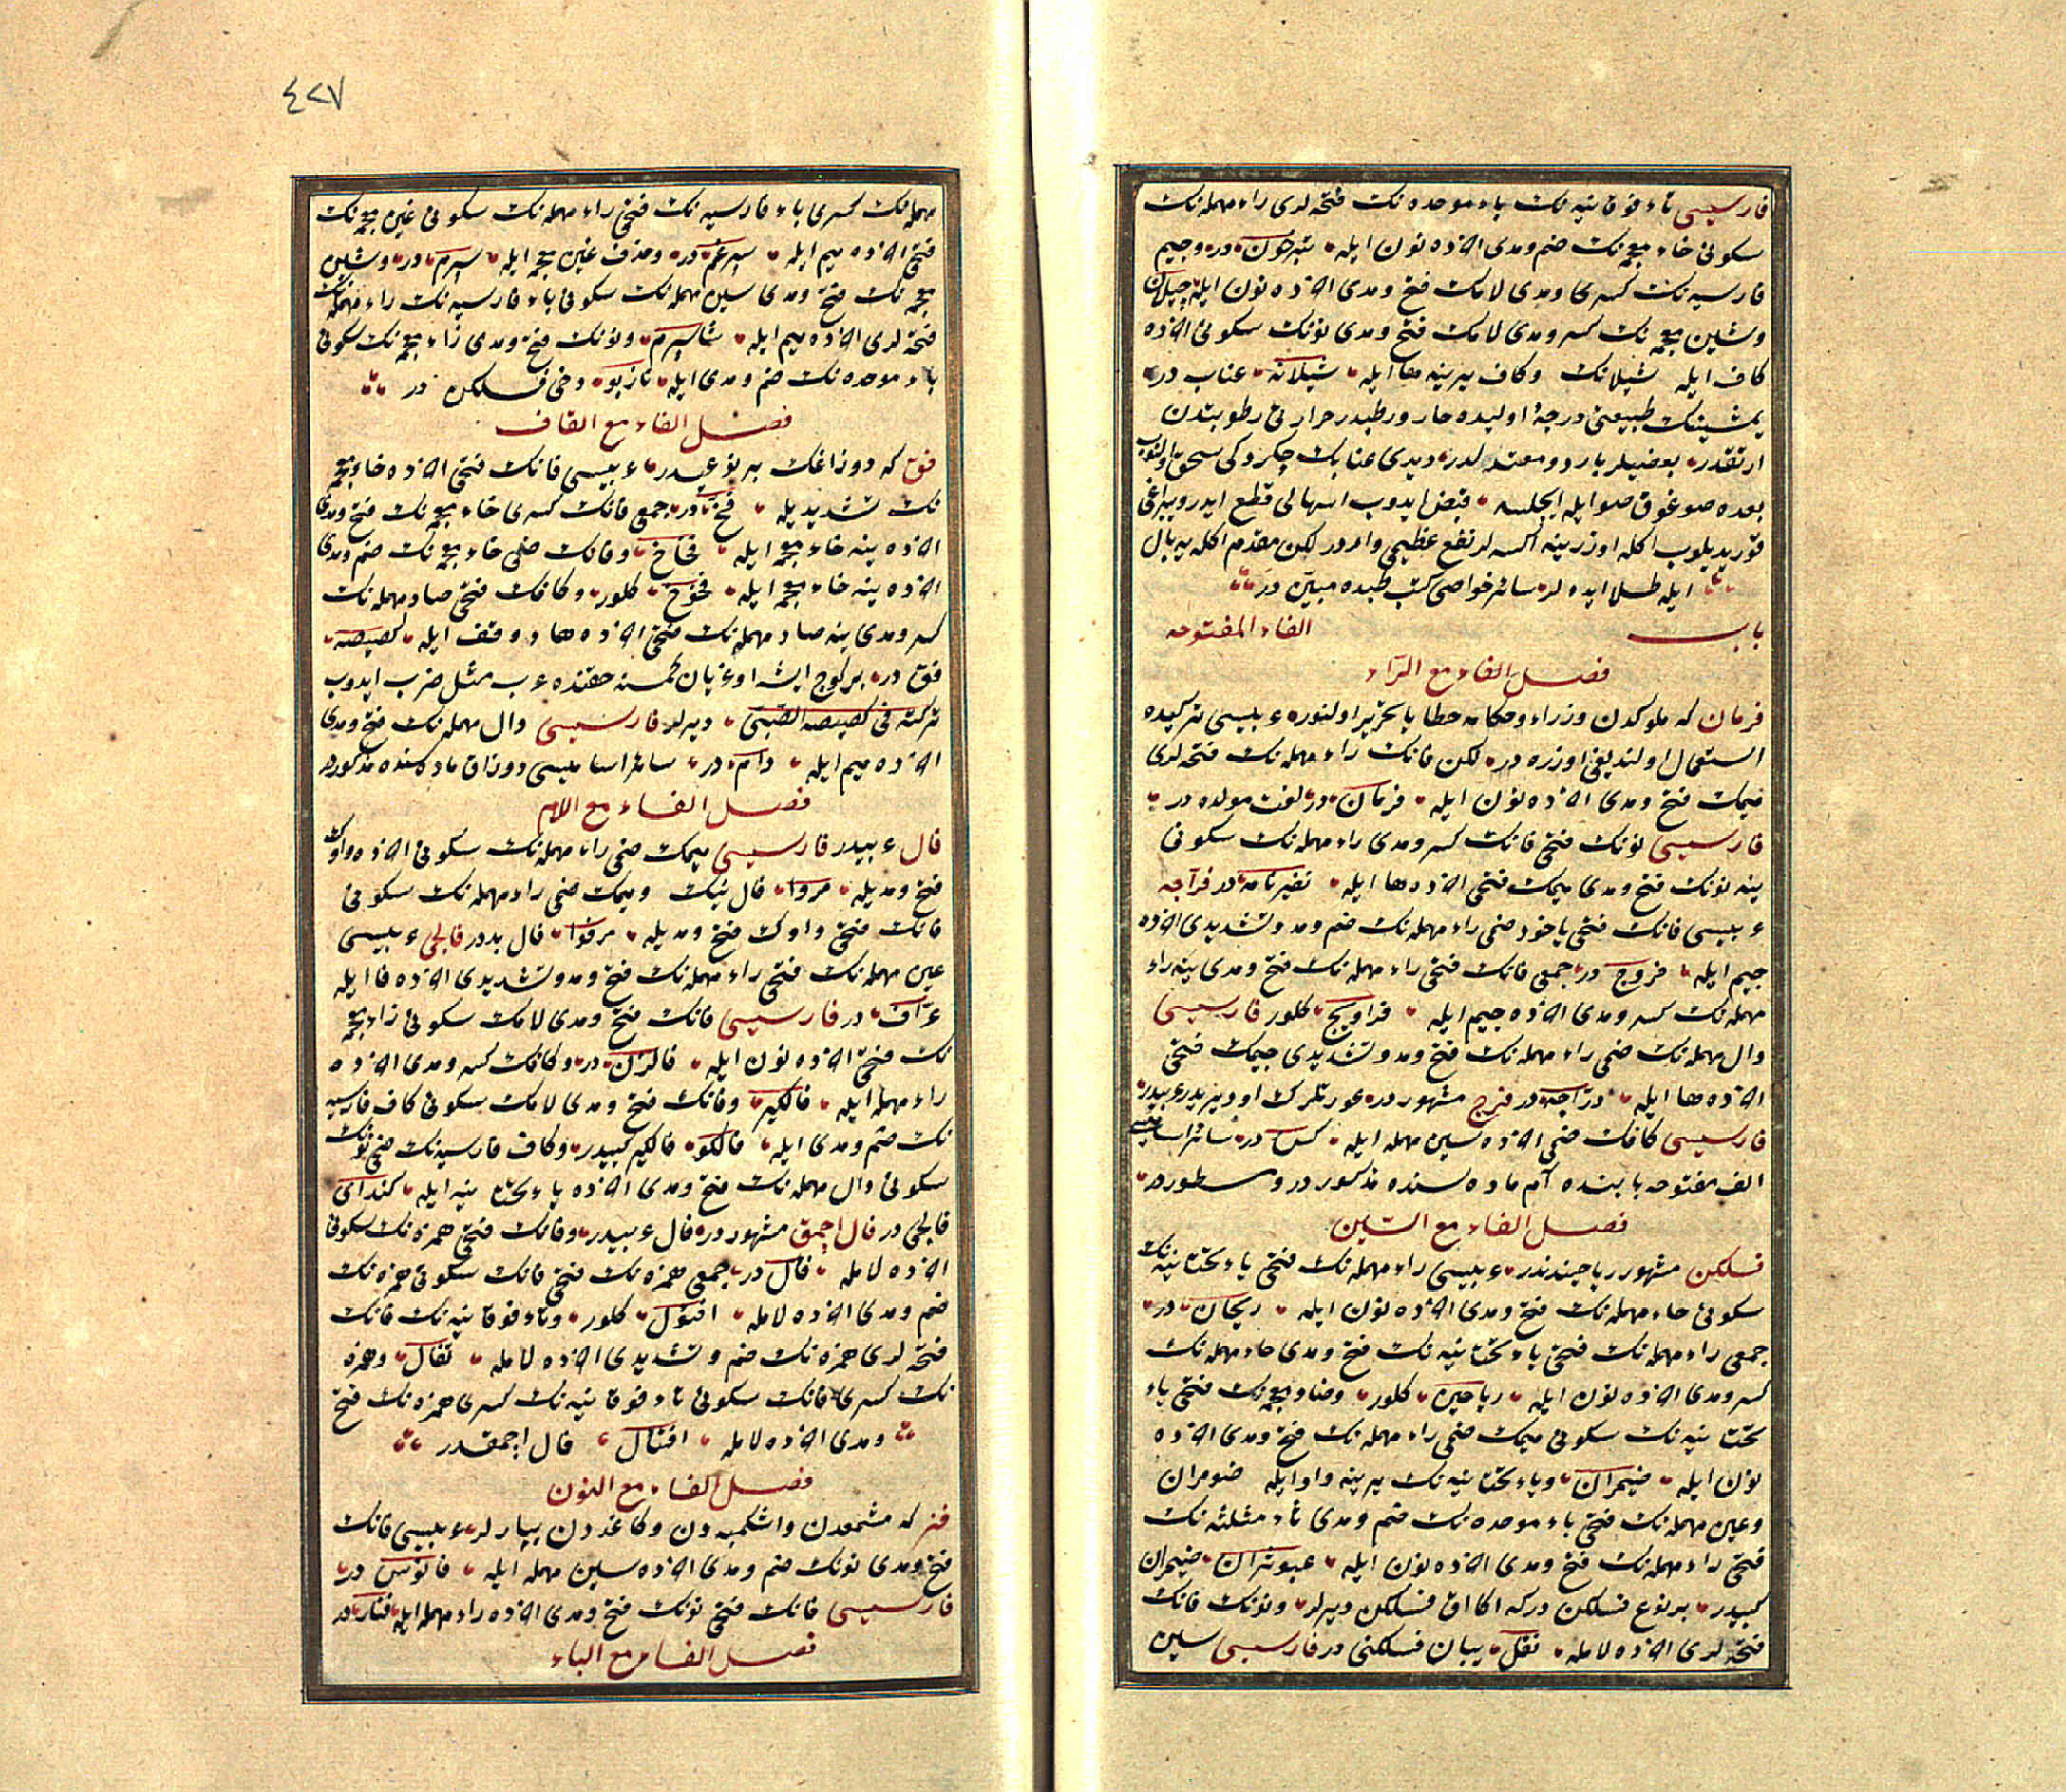 فارسیسی تاء فوقانیه نك باء موحده نك فتحه لری راء مهمله نك
سكونی خاء معجمه نك ضم ومدی آخرده نون ایله تبرخون در وجیم
فارسیه نك كسری ومدی لامك فتح ومدی آخرده نون ایله چیلان
وشین معجمه نك كسر ومدی لامك فتح ومدی نونك سكونی آخرده
كاف ایله شیلانك وكاف یرینه ها ایله شیلانه عناب در
یمشینك طبیعتی درجۀ اولیده حار ورطبدر حرارتی رطوبتدن
ارتقدر بعضیلر بارد و معتدلدر دیدی عنابك چكردكی سحق اولنوب
بعده صوغوق صو ایله ایچلسه قبض ایدوب اسهالی قطع ایدر ویپراغی
قوریدیلوب اكله اوزرینه اكسه لر نفع عظیمی واردر لكن مقدم اكله یه بال
ایله طلا ایده لر سائر خواصی كتب طبده مبین در
باب الفاء المفتوحه
فصل الفاء مع الراء
فرمان كه ملوكدن وزراء وحكامه خطابا تحریر اولنور عربیسی تركیده
استعمال اولندیغی اوزره در لكن فانك راء مهمله نك فتحه لری
میمك فتح ومدی آخرده نون ایله فرمان در لغت مولده در
فارسیسی نونك فتحی فانك كسر ومدی راء مهمله نك سكونی
ینه نونك فتح ومدی میمك فتحی آخرده ها ایله نفیرنامه در فرآجه
عربیسی فانك فتحی یاخود ضمی راء مهمله نك ضم ومد وتشدیدی آخرده
جیم ایله فروج در جمعی فانك فتحی راء مهمله نك فتح ومدی ینه راء
مهمله نك كسر ومدی آخرده جیم ایله فراریج كلور فارسیسی
دال مهمله نك ضمی راء مهمله نك فتح ومد وتشدیدی جیمك فتحی
آخرده ها ایله دراجه در فرج مشهور در عورتلرك اودیریدر عربیدر
فارسیسی كافك ضمی آخرده سین مهمله ایله كس در سائر اسامیسی
الف مفتوحه بابنده آم ماده سنده مذكور در ومسطور در
فصل الفاء مع السین
فسلكن مشهور ریاحیندندر عربیسی راء مهمله نك فتحی یاء تحتانیه نك
سكونی حاء مهمله نك فتح ومدی آخرده نون ایله ریحان در
جمعی راء مهمله نك فتحی یاء تحتانیه نك فتح ومدی حاء مهمله نك
كسر ومدی آخرده نون ایله ریاحین كلور وضاد معجمه نك فتحی یاء
تحتانیه نك سكونی میمك ضمی راء مهمله نك فتح ومدی آخرده
نون ایله ضیمران ویاء تحتانیه نك یرینه واو ایله ضومران
وعین مهمله نك فتحی باء موحده نك ضم ومدی ثاء مثلثه نك
فتحی راء مهمله نك فتح ومدی آخرده نون ایله عبوثران ضیمران
كبیدر بر نوع فسلكن در كه اكا اق فسلكن دیرلر ونونك فانك
فتحه لری آخرده لامله نفل یبان فسلكنی در فارسیسی سین
٤٢٧
مهمله نك كسری باء فارسیه نك فتحی راء مهمله نك سكونی غین معجمه نك
فتحی آخرده میم ایله سپرغم در وحذف غین معجمه ایله سپرم در وشین
معجمه نك فتح ومدی سین مهمله نك سكونی باء فارسیه نك راء مهمله نك
فتحه لری آخرده میم ایله شاسپرم ونونك فتح ومدی زاء معجمه نك سكونی
باء موحده نك ضم ومدی ایله نازبو دخی فسلكن در
فصل الفاء مع القاف
فق كه دوزاغك بر نوعیدر عربیسی فانك فتحی آخرده خاء معجمه
نك تشدیدیله فخ در جمعی فانك كسری خاء معجمه نك فتح ومدی
آخرده ینه خاء معجمه ایله فخاخ وفانك ضمی خاء معجمه نك ضم ومدی
آخرده ینه خاء معجمه ایله فخوخ كلور وكافك فتحی صاد مهمله نك
كسر ومدی ینه صاد مهمله نك فتحی آخرده هاء وقف ایله كصیصه
فق در بر كوج ایشه اوغریان كمسنه حقنده عرب مثل ضرب ایدوب
تركته فی كصیصة الظبی دیرلر فارسیسی دال مهمله نك فتح ومدی
آخرده میم ایله دام در سائر اسامیسی دوزاق ماده سنده مذكوردر
فصل الفاء مع اللام
فال عربیدر فارسیسی میمك ضمی راء مهمله نك سكونی آخرده واوك
فتح ومدیله مروا فال نیك ومیمك ضمی راء مهمله نك سكونی
فانك فتحی واوك فتح ومدیله مرفوا فال بددر فالجی عربیسی
عین مهمله نك فتحی راء مهمله نك فتح ومد وتشدیدی آخرده فا ایله
عراف در فارسیسی فانك فتح ومدی لامك سكونی زاء معجمه
نك فتحی آخرده نون ایله فالزن در وكافك كسر ومدی آخرده
راء مهمله ایله فالكیر وفانك فتح ومدی لامك سكونی كاف فارسیه
نك ضم ومدی ایله فالكو فالكیر كبیدر وكاف فارسیه نك ضمی نونك
سكونی دال مهمله نك فتح ومدی آخرده یاء تحتانیه ایله كندای
فالجی در فال اجمق مشهور در فال عربیدر وفانك فتحی همزه نك سكونی
آخرده لامله فأل در جمعی همزه نك فتحی فانك سكونی همزه نك
ضم ومدی آخرده لامله افؤل كلور وتاء فوقانیه نك فانك
فتحه لری همزه نك ضم وتشدیدی آخرده لامله تفأل وهمزه
نك كسری فانك سكونی تاء فوقانیه نك كسری همزه نك فتح
ومدی آخرده لامله افتئال فال اجمقدر
فصل الفاء مع النون
فنر كه مشمعدن واشكمبه دن وكاغددن یپارلر عربیسی فانك
فتح ومدی نونك ضم ومدی آخرده سین مهمله ایله فانوس در
فارسیسی فانك فتحی نونك فتح ومدی آخرده راء مهمله ایله فنار در
فصل الفاء مع الیاء